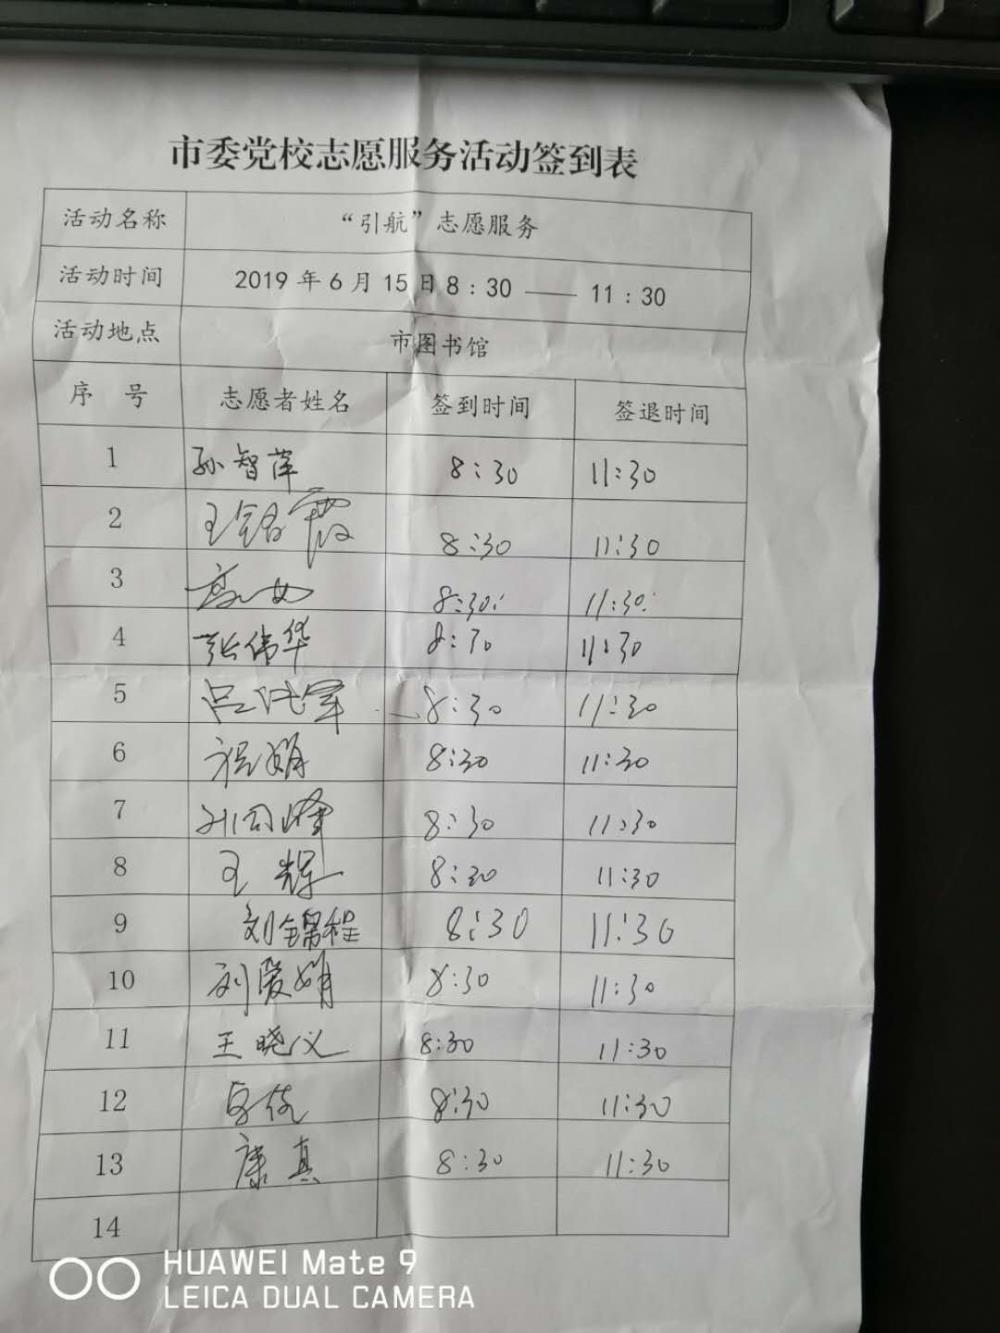 市委党校志愿服务活动签到表
活动名称 “引航”志愿服务
活动时间 2019年6月15日8:30——11:30
活动地点 市图书馆
序 号 志愿者姓名 签到时间 签退时间
1 孙智萍 8:30 11:30
2 8:30 11:30
3 8:30 11:30
4 张伟华 8:30 11:30
5 8:30 11:30
6 祝娟 8:30 11:30
7 8:30 11:30
8 王辉 8:30 11:30
9 刘锦程 8:30 11:30
10 刘爱娟 8:30 11:30
11 王晓义 8:30 11:30
12 8:30 11:30
13 康真 8:30 11:30
14
HUAWEI Mate 9
LEICA DUAL CAMERA